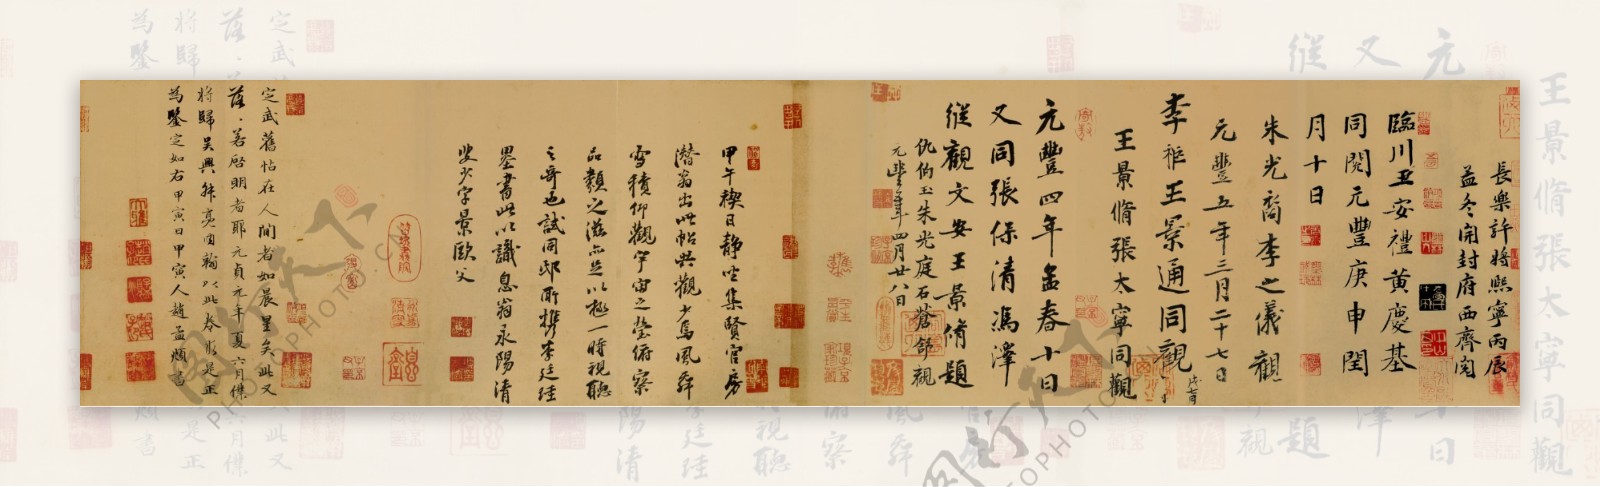 長樂許將熙寧丙辰
孟冬開封府西齋閱
臨川王安禮黃慶基
同閱元豐庚申閏
月十日
朱光裔李之儀觀
元豐五年三月二十七日
李秬王景通同觀
王景脩張太寧同觀
元豐四年孟春十日
又同張保清馮澤
縱觀文安王景脩題
仇伯玉朱光庭石蒼舒觀
元豐五年四月廿八日
甲午禊日靜坐集賢官房
濳翁出此帖共觀少焉風舞
雪積仰觀宇宙之瑩俯察
品類之滋亦足以極一時視聽
之奇也試同邸所攜李廷珪
墨書此以識息翁永陽清
叟少字景歐父
定武舊帖在人間者如晨星矣此又
落落若啓明者耶元貞元年夏六月僕
將歸吳興叔亮內翰以此卷求是正
為鑒定如右甲寅日甲寅人趙孟頫書